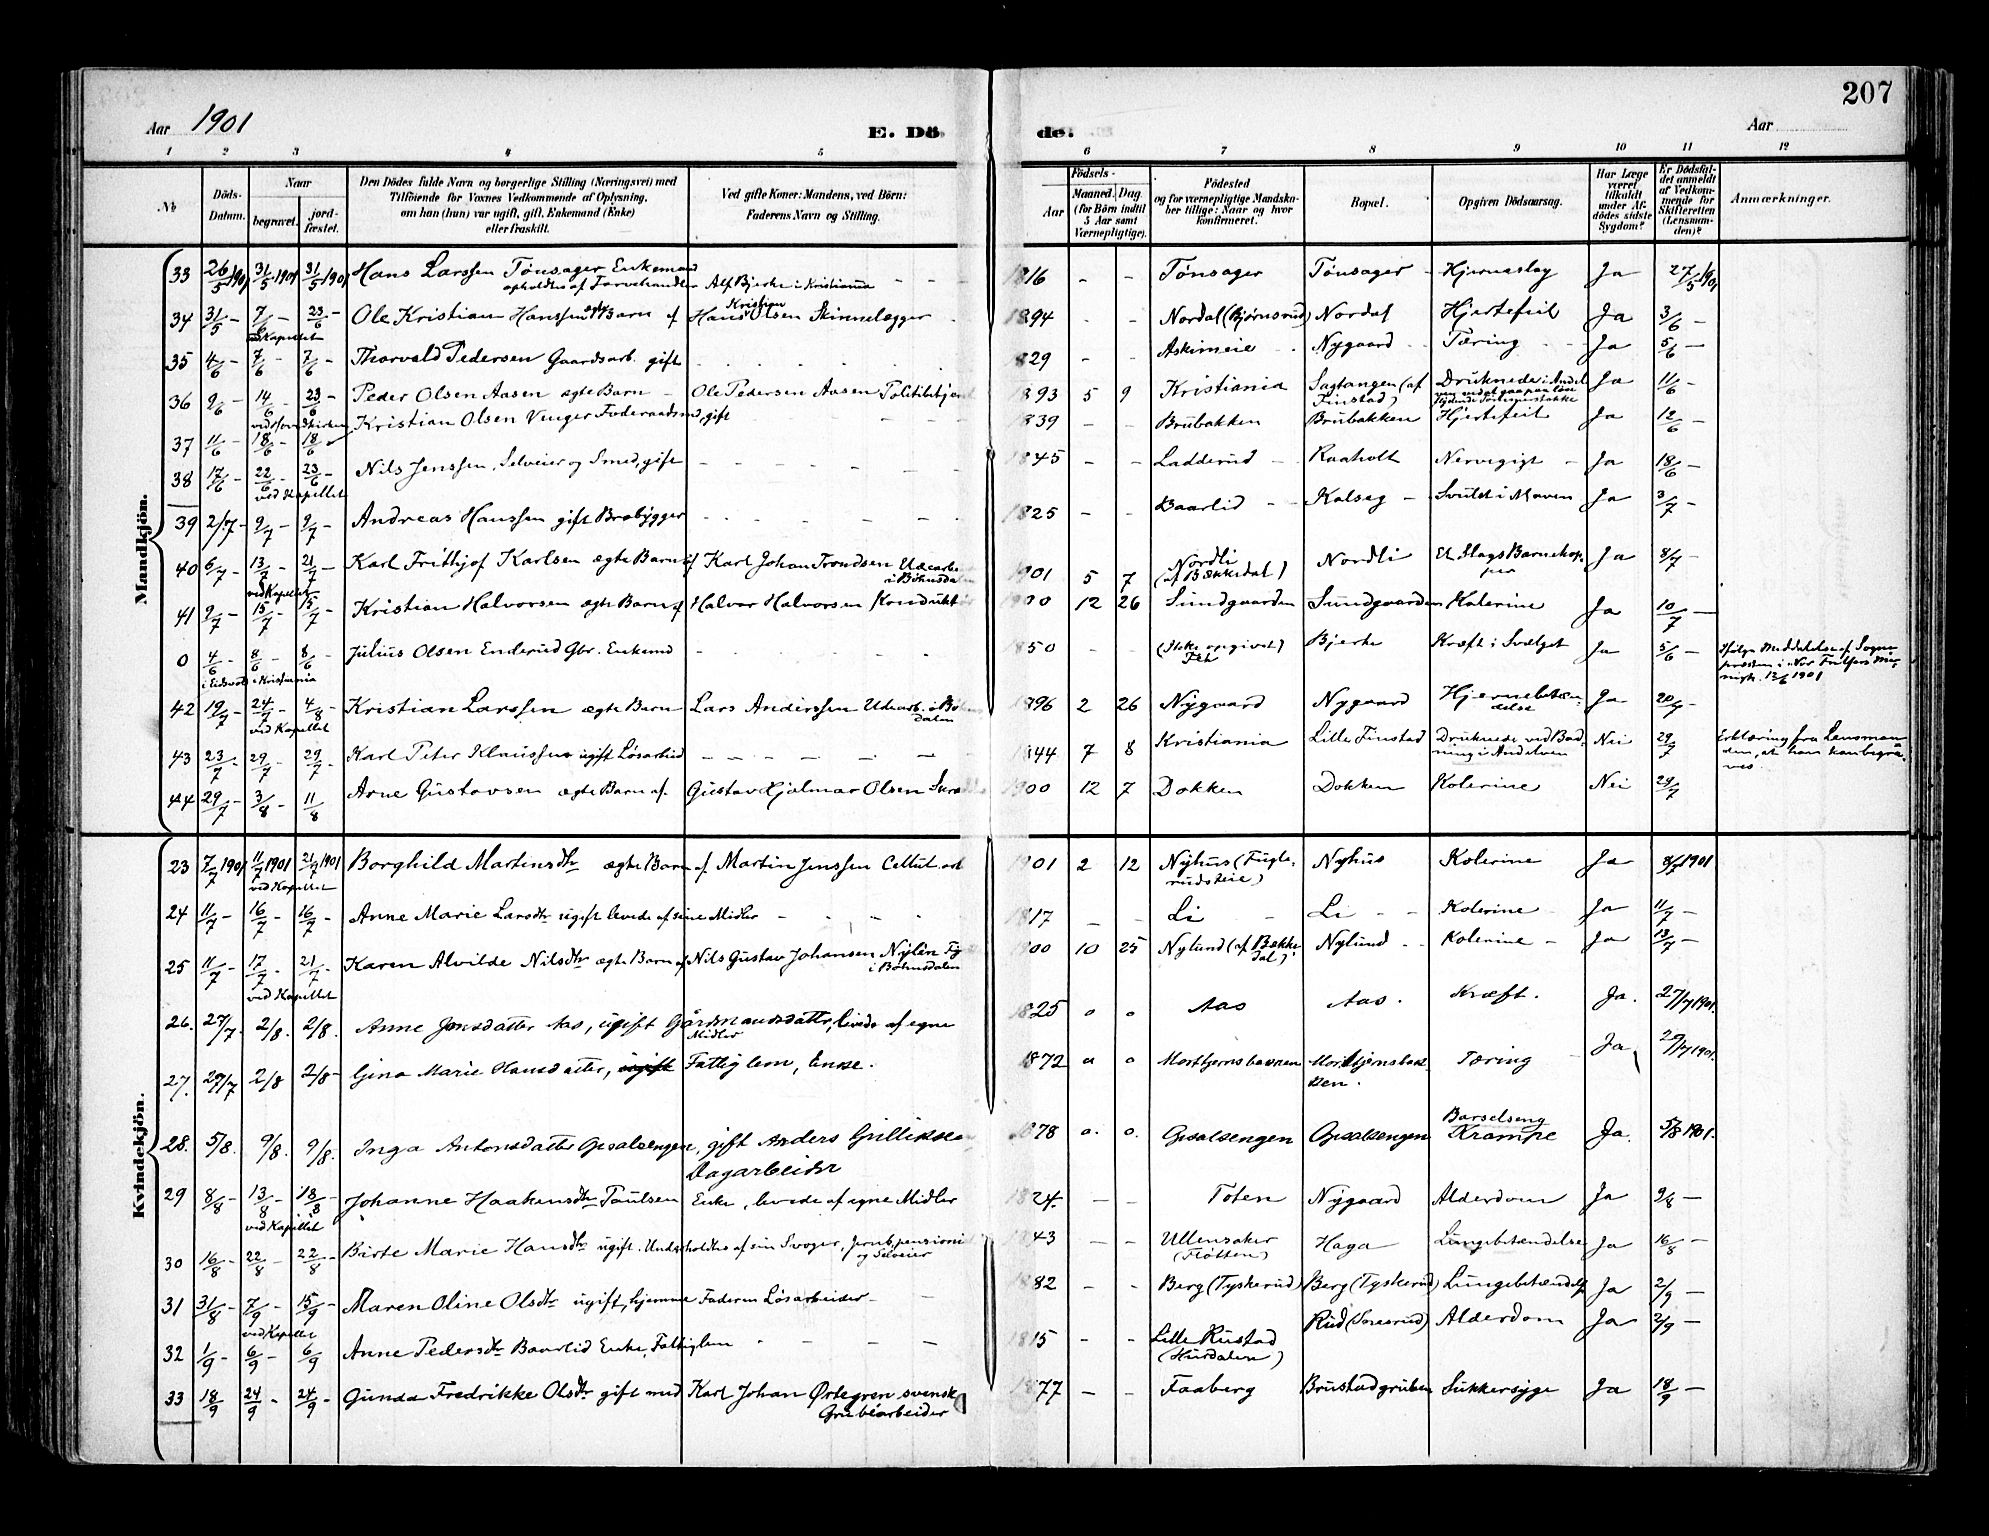 207
Aar 1901
E. Dö
de.
Aar
1 2 3 4 5 6 7 8 9 10 11 12
No
Döds-Datum.
Naar
begravet.
jord-fæstet.
Den Dödes fulde Navn og borgerlige Stilling (Næringsvei) med
Tilföiende for Voxnes Vedkommende af Oplysning,
om han (hun) var ugift, gift, Enkemand (Enke)
eller fraskilt.
Ved gifte Koner: Mandens, ved Börn:
Faderens Navn og Stilling.
Födsels-
Aar
Maaned. Dag.
(for Börn indtil
5 Aar samt
Værnepligtige).
Födested
og for værnepligtige Mandska-
ber tillige: Naar og hvor
konfirmeret.
Bopæl.
Opgiven Dödsaarsag.
Har Læge
været
tilkaldt
under Af-
dödes sidste
Sygdom?
Er Dödsfal-
det anmeldt
af Vedkom-
mende for
Skifteretten
(Lensman-
den)?
Anmærkninger.
Mandkjön.
33 26/5 1901 31/5 1901 31/5 1901 Hans Larssen Tønsager Enkemand 1816 - - Tønsager Tønsager Hjerneslag Ja 27/5 1901
opholdtes af Farvehandler Alf Bjerke i Kristiania
34 31/5 - 7/6 - 23/6 - Ole Kristian Hanssen ægte Barn af Hans Kristian Olsen Skinnelægger 1894 - - Nordal (Bjørnsrud) Nordal Hjertefeil Ja 3/6 -
Kapellet
35 4/6 - 7/6 - 7/6 - Thorvald Pedersen Gaardsarb. gift 1829 - - Askimeie Nygaard Tæring Ja 5/6 -
36 9/6 - 14/6 - 23/6 - Peder Olsen Aasen ægte Barn Ole Pedersen Aasen 1893 5 9 Kristiania Sagtangen (af Finstad) Druknede i Andel Ja 11/6 -
37 11/6 - 18/6 - 18/6 Kristian Olsen Vinger gift 1839 - - Brubakken Brubakken Hjertefeil Ja 12/6 -
38 17/6 - 22/6 - 23/6 - Nils Jenssen, Selveier og Smed, gift 1845 - - Ladderud Raaholt Nervegigt Ja 18/6 -
ved Kapellet
39 2/7 - 9/7 - 9/7 Andreas Hanssen gift Brobygger 1825 - - Baarlid Kalseg Svulst i Maven Ja 3/7 -
40 6/7 - 13/7 - 21/7 - Karl Frithjof Karlsen ægte Barn af Karl Johan Trondsen 1901 5 7 Nordli (af Bækkedal) Nordli Et Slags Barnekopper Ja 8/7 -
ved Kapellet i Bøhnsdalen
41 9/7 - 15/7 - 15/7 - Kristian Halvorsen ægte Barn af Halvor Halvorsen Konduktør 1900 12 26 Sundgaarden Sundgaarden Kolerine Ja 10/7 -
0 4/6 - 8/6 - 8/6 - Julius Olsen Enderud Gbr. Enkemd 1850 - - (Ikke opgivet) Bjerke Kræft i Svælget Ja 5/6 - Ifølge Meddelelse af Sogne-
i Eidsvold i Kristiania
præsten i Vor Frelsers Me-
nigh. 13/6 1901
42 19/7 - 24/7 - 4/8 - Kristian Larssen ægte Barn Lars Anderssen 1896 2 26 Nygaard Nygaard Hjernebetændelse Ja 20/7 -
ved Kapellet
43 23/7 - 29/7 - 29/7 - Karl Peter Klaussen ugift Løsarbeid 1844 7 8 Kristiania Lille Finstad Druknede ved Bad- Nei 29/7 Erklæring fra Lensman-
ning i Andelven den, at han kan begra-
ves.
44 29/7 - 3/8 - 11/8 Arne Gustavsen ægte Barn af Gustav Hjalmar Olsen 1900 12 7 Dokken Dokken Kolerine Nei 29/7
Kvindekjön.
23 7/7 1901 11/7 1901 21/7 1901 Borghild Martinsdtr ægte Barn af Martin Jenssen Cellul. arb 1901 2 12 Nyhus (Fugle- Nyhus Kolerine Ja 8/7 1901
ved Kapellet rudseie)
24 11/7 - 16/7 - 16/7 - Anne Marie Larsdtr ugift levede af sine Midler 1817 - - Li Li Kolerine Ja 11/7 -
25 11/7 - 17/7 - 21/7 - Karen Alvilde Nilsdtr ægte Barn af Nils Gustav Johansen Nylén 1900 10 25 Nylund (af Bække- Nylund Kolerine Ja 13/7 -
ved Kapellet i Bøhnsdalen dal)
26. 27/7. 2/8. 2/8. Anne Jonsdatter Aas, ugift Gårdmandsdatter, levede af egne 1825 o o Aas Aas. Kræft. Ja. 27/7 1901.
Midler
27. 29/7 2/8 2/8 - Gina Marie Hansdatter, ugift Fattiglem, Enke. 1872 o o Morttjernsbakken Morttjernsbakken. Tæring Ja 29/7 1901.
28. 5/8. 9/8. 9/8. Inga Antonsdatter Opsalsengen, gift Anders Gulliksen 1878 o. o. Opsalsengen Opsalsengen Barselseng Krampe Ja. 5/8 1901.
Dagarbeider
29 8/8 - 13/8 - 18/8 - Johanne Haakensdtr Paulsen Enke, levede af egne Midler 1824. - - Toten Nygaard Alderdom Ja 9/8 -
ved Kapellet
30 16/8 - 22/8 - 22/8 - Birte Marie Hansdtr ugift. Underholdtes af sin Svoger, Jernb.pensionist 1843 - - Ullensaker Haga Lungebetændelse Ja 16/8 -
og Selveier (Fløtten)
31 31/8 - 7/9 - 15/9 - Maren Oline Olsdtr ugift, hjemme Faderen Løsarbeider 1882 - - Berg (Tyskerud) Berg (Tyskerud) Lungebetændelse Ja 2/9 -
ved Kapellet
32 1/9 - 6/9 - 6/9 Anne Pedersdtr Baarlid Enke, Fattiglem 1815 - - Lille Rustad Rud Alderdom Ja 2/9 -
(Hurdalen)
33 18/9 24/9 - 24/9 - Gunda Fredrikke Olsdtr gift med Karl Johan Ørtegren svensk 1877 - - Faaberg Brustadgruben Sukkersyge Ja 18/9 -
Grubearbeider